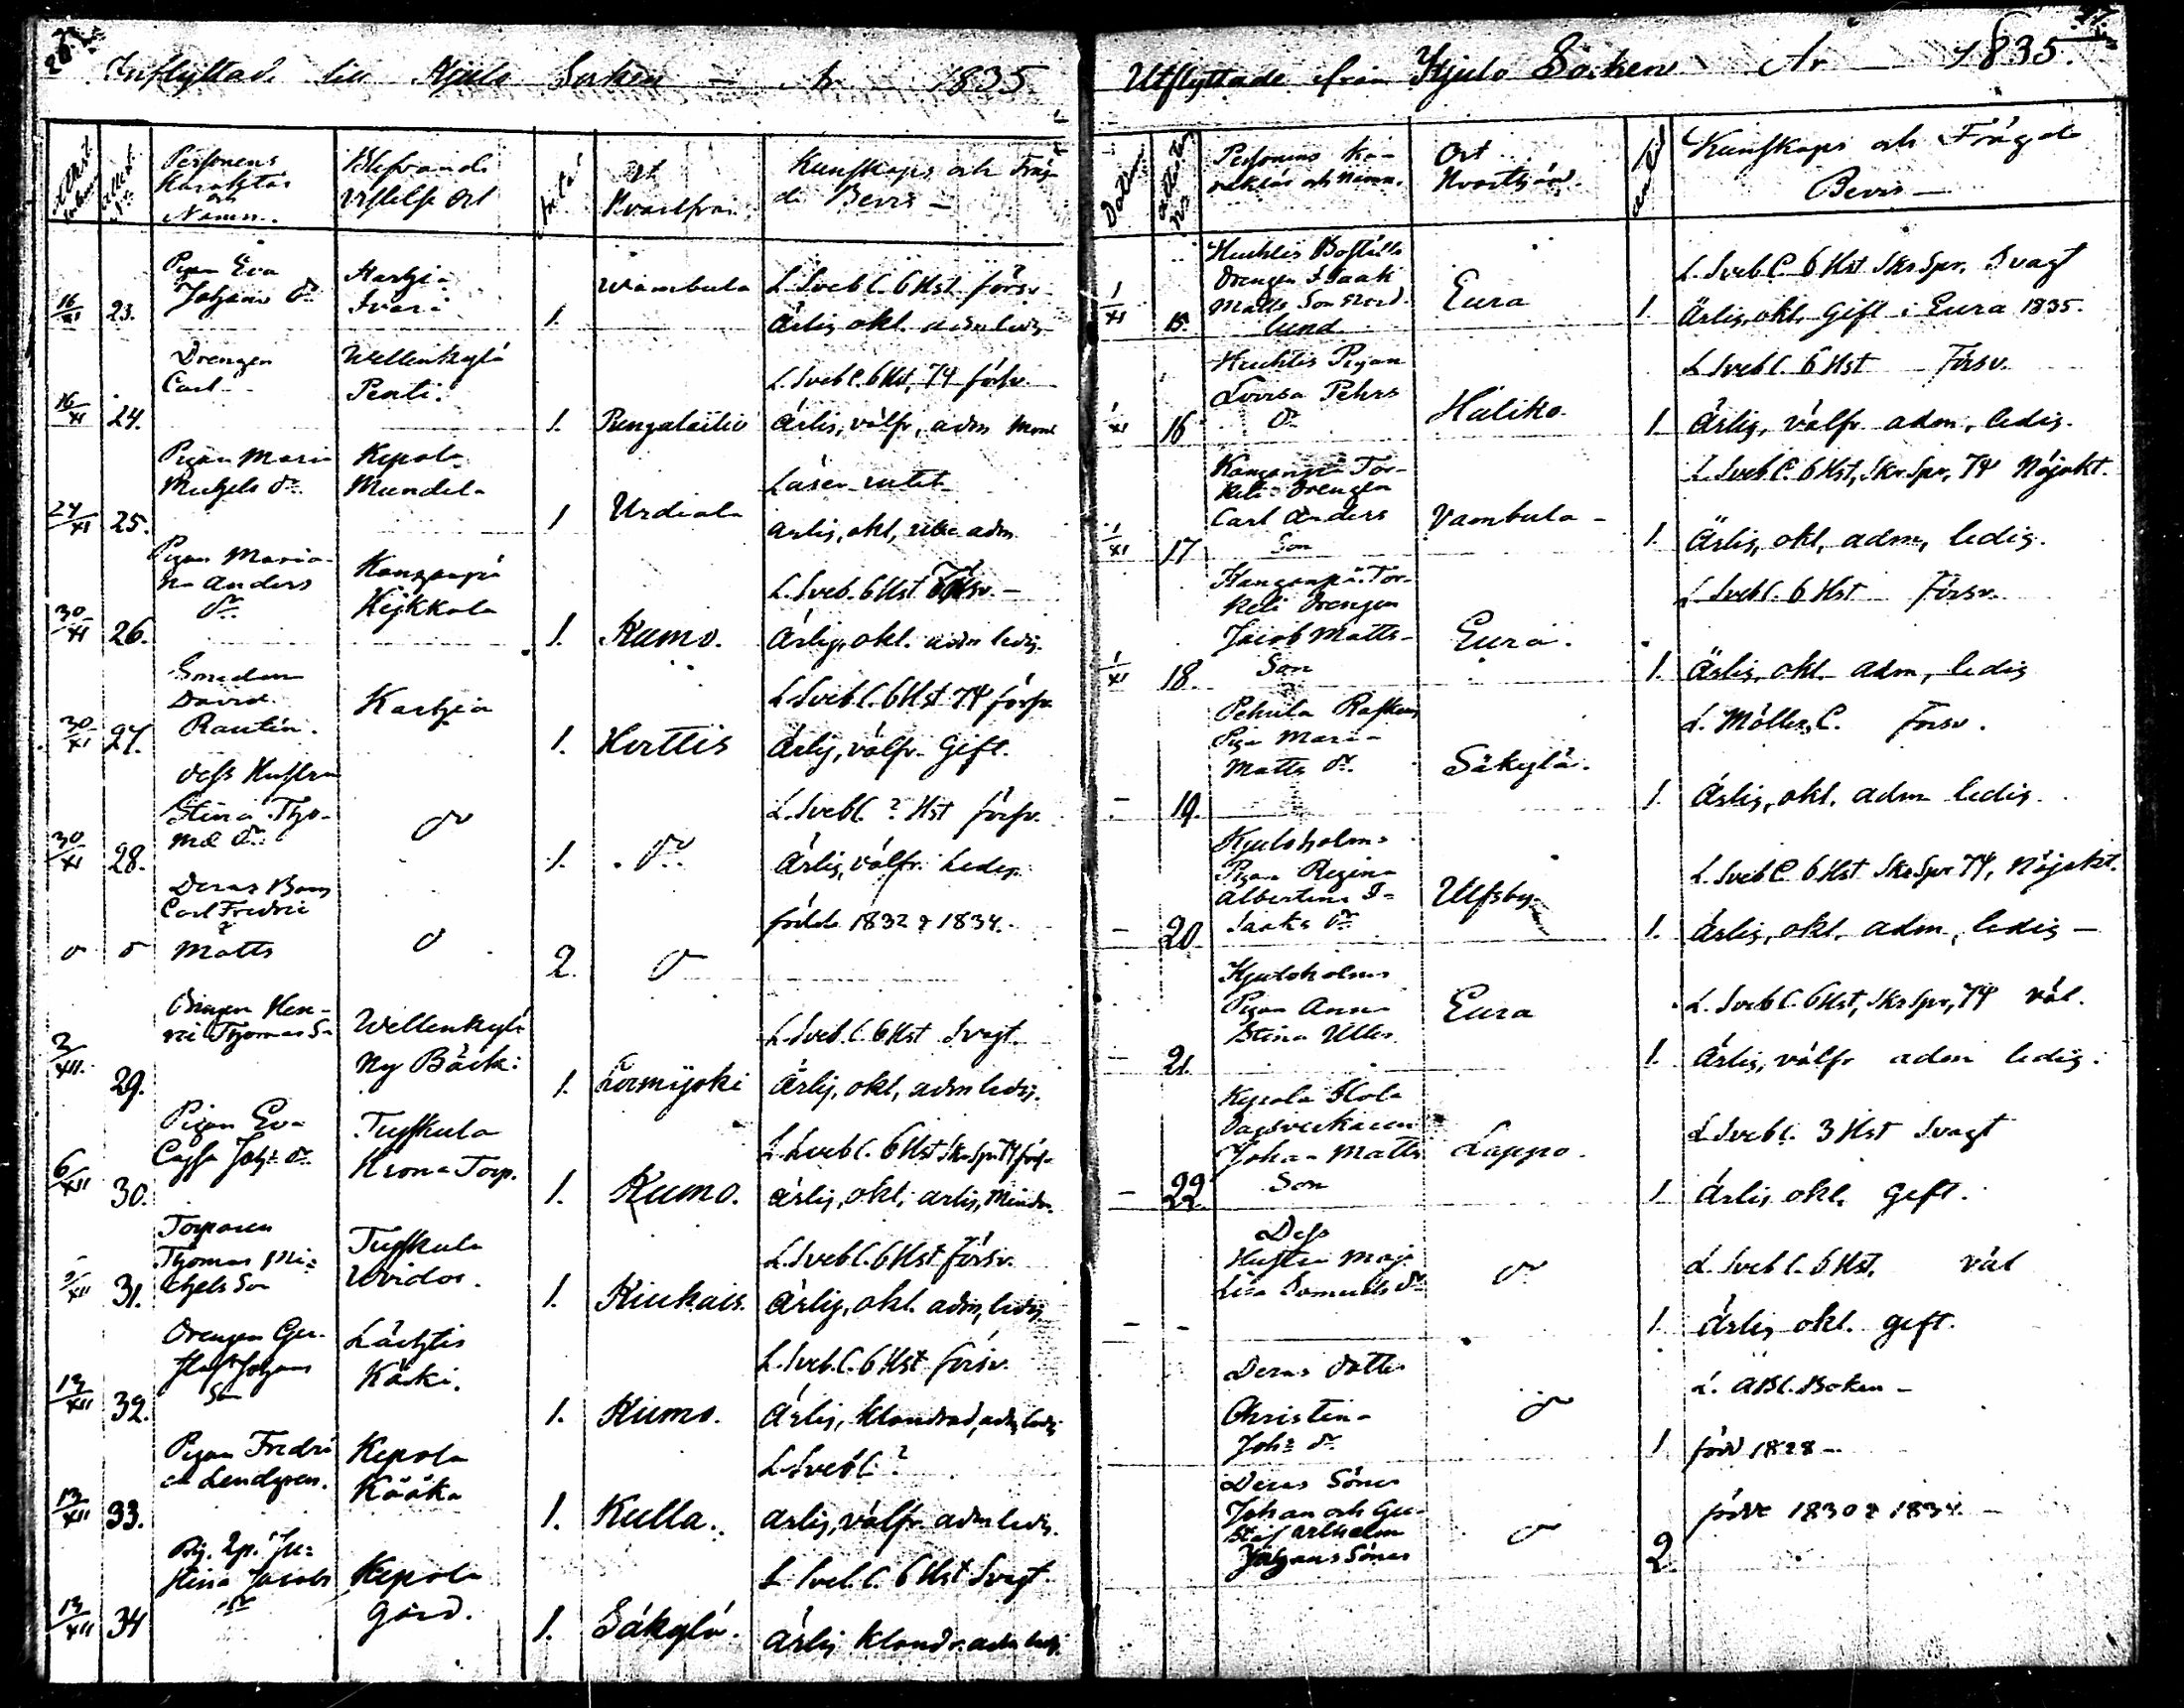 Inflyttade till Kjulo Socken – År 1835.
Personens Karakter och Namn.
Blifvande Vistelse Ort
Ort Hvarifrån
Kunskaps och Frägde Bevis –
16/XI 23. Pigan Eva Johans dr. Karhia Ivari 1. Wambula L. Sveb C. 6 Hst. försv.
Ärlig okl. adm ledig
16/XI 24. Drengen Carl Wellenkylä Penti. 1. Pungalaitio L. Sveb C. 6 Hst, 74 försv.
Ärlig, välfr, adm
24/XI 25. Pigan Maria Michels dr. Kepola Mundela 1 Urdiala Läser intet
ärlig, okl, icke adm
30/XI 26. Pigan Maria Anders dr. Kanganpä Heikkola 1. Kumo. L. Sveb. 6 Hst Försv. –
Ärlig, okl. adm ledig.
30/XI 27. Smeden David Rautin. Karhia 1. Herttis L. Sveb C. 6 Hst 74 försv.
Ärlig, välfr. Gift.
30/XI 28. Dess Hustru Stina Tho-
mæ dr. do 1. do L. Sveb C. ? Hst försv.
Ärlig, välfr.
do do Deras Barn Carl Fredric & Matts do 2. do födde 1832 & 1834.
3/XII. 29. Drengen Hen-
ric Thomas S. Wellenkylä Ny Bäck. 1. Lormijoki L. Sveb. C. 6 Hst Svagt.
Ärlig, okl, adm ledig.
6/XII 30. Pigan Eva Cajsa Joh: dr. Tuiskula Krono Torp. 1. Kumo. L. Sveb C. 6 Hst Skr Spr. 74 försv
Ärlig, okl,
31. Torparen Thomas Mi-
chels Son Tuiskula Uvidos. 1. Kiukais. L. Sveb C. 6 Hst försv.
Ärlig, okl. adm, ledig
13/XII 32. Drengen Gu-
staf Johans Son Lähtis Käki. 1. Kumo. L. Sveb. C. 6 Hst försv.
Ärlig, klandrad, adm, ledig
13/XII 33. Pigan Fredri
ca Lendgren. Kepola Kääka 1. Kulla. L. Sveb C ?
Ärlig, välfr. adm ledig.
13/XII 34 Jacobs dr Kepola Gård. 1. Säkylä. L. Sveb. C. 6 Hst Svagt.
Ärlig klandr. adm ledig.
Utflyttade från Kjulo Socken År 1835.
Datum
Personens Ka-
rakter och Namn.
Ort Hvarthän.
Kunskaps och Frägde Bevis –
1/XI 15. Huchtis Boställs Drengen Isaak Matts Son Nord-
lund Eura 1. L. Sveb C. 6 Hst Skr Spr. Svagt
Ärlig, okl. Gift i Eura 1835.
1/XI 16 Huchtis Pigan Lovisa Pehrs dr Haliko. 1. L Sveb C. 6 Hst Försv.
Ärlig, välfr. adm, ledig.
1/XI 17 Kanganpä Tor-
keli Drengen Carl Anders Son Vambula – 1. L. Sveb C. 6 Hst, Skr Spr, 74 Nöjakt.
Ärlig, okl, adm, ledig.
1/XI 18. Kanganpä Tor-
keli Drengen Jacob Matts-
Son Eura. 1. L. Sveb C. 6 Hst Försv.
Ärlig, okl. adm, ledig
– 19. Pehula Piga Maria Matts dr. Säkylä. 1. L. Möllers C. Försv.
Ärlig, okl. adm ledig.
– 20. Kjuloholms Pigan Regina Albertina I-
saaks dr Ulfsby. 1. L. Sveb C. 6 Hst Skr Spr 74, Nöjakt.
Ärlig, okl. adm, ledig –
– 21. Kjuloholms Pigan Anna Stina Ulles Eura 1. L. Sveb C. 6 Hst, Skr Spr, 74 väl.
Ärlig, välfr adm ledig.
– 22. Kepola Dagsverkaren Johan Matts Son Lappo. 1. L. Sveb C. 3 Hst Svagt
Ärlig okl. gift.
– – Dess Hustru Maja Lisa Samuels dr do 1. L. Sveb C. 6 Hst. väl
Ärlig okl. gift.
Deras Dotter Christina Joh: dr do 1 L. ABC. Boken –
född 1828 –
Deras Söner Johan och Gu-
staf Wilhelm Johans Söner do 2. födde 1830 & 1834. –